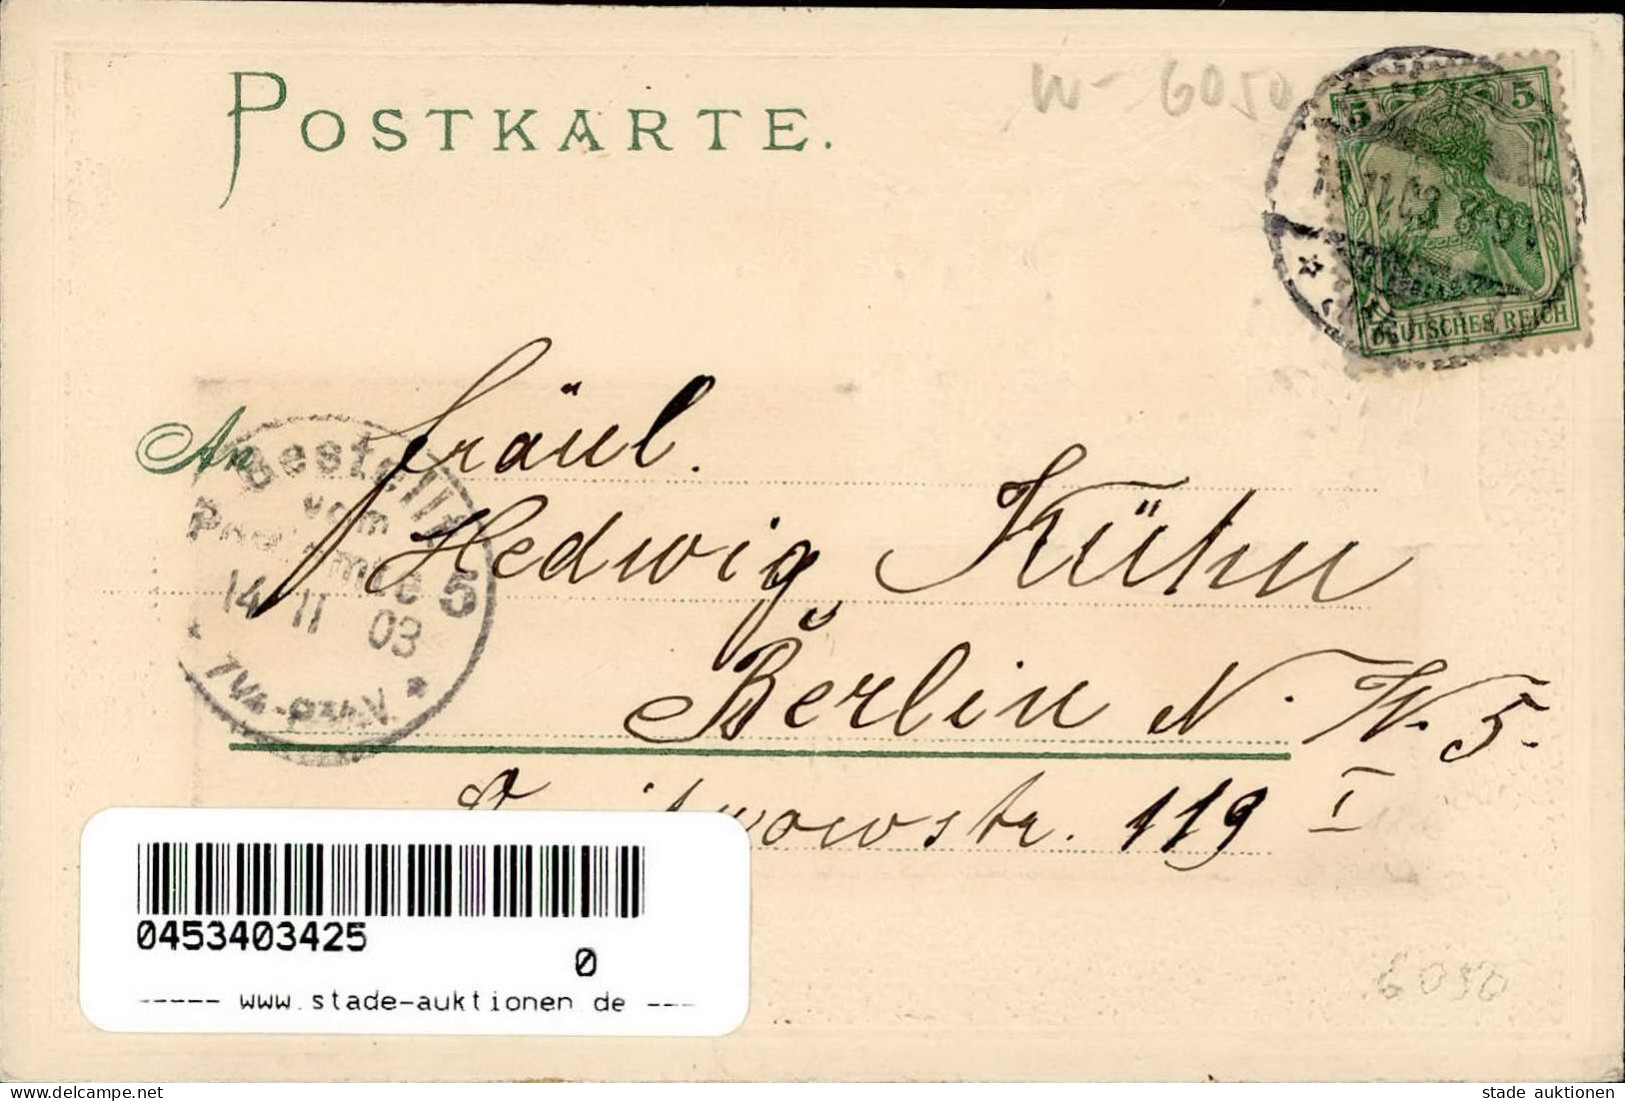 POSTKARTE.
W- 6050
5 5
DEUTSCHES REICH
An Fräul.
Hedwig Kühn
Berlin N. W. 5.
119 I
Bestellt
vom
Postamte 5
14 11 03
7¼-8¼V.
0453403425
0
----- www.stade-auktionen.de ---
6050
stade auktionen
stade auktionen